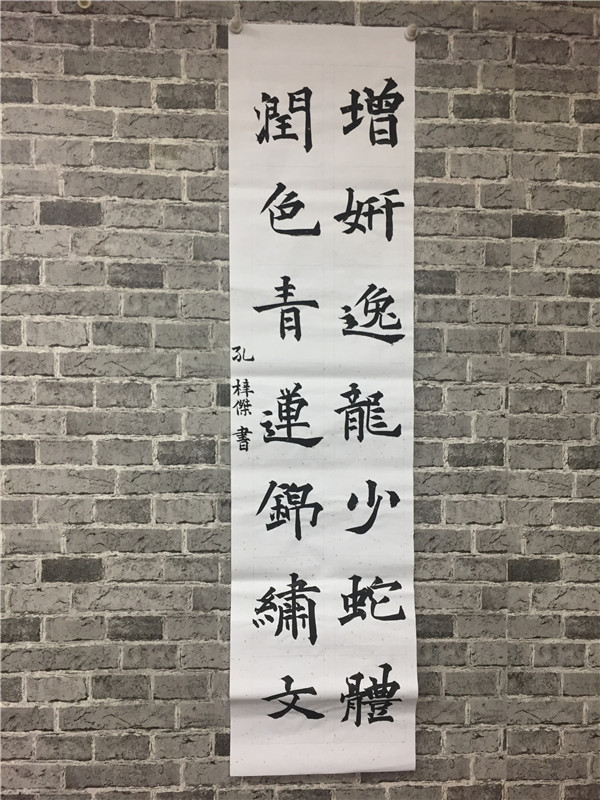 增妍逸龍少蛇體
潤色青運錦繡文
孔梓傑書